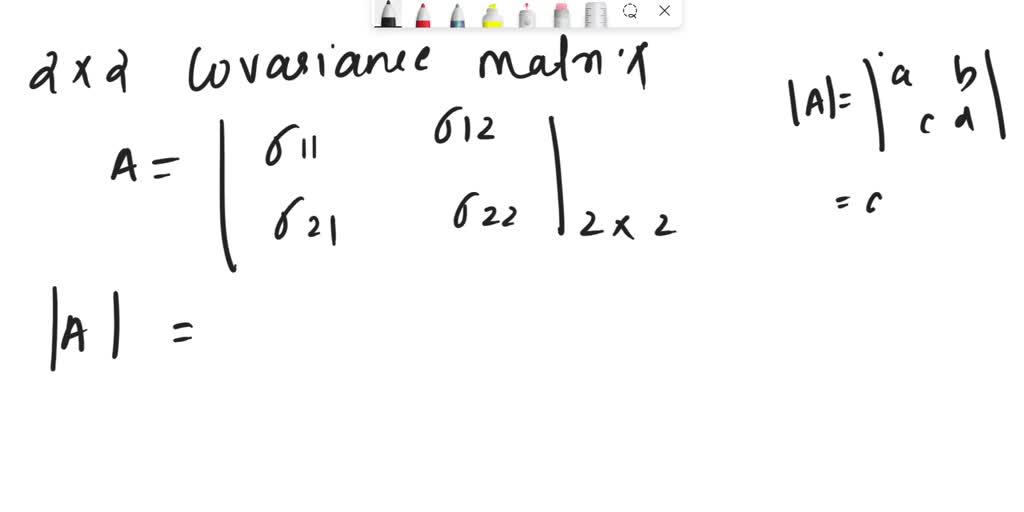 2 x 2 Covariance matrix
A = | σ11 σ12 |
| σ21 σ22 | 2 x 2
|A| =
|A| = | a b |
| c d |
= c